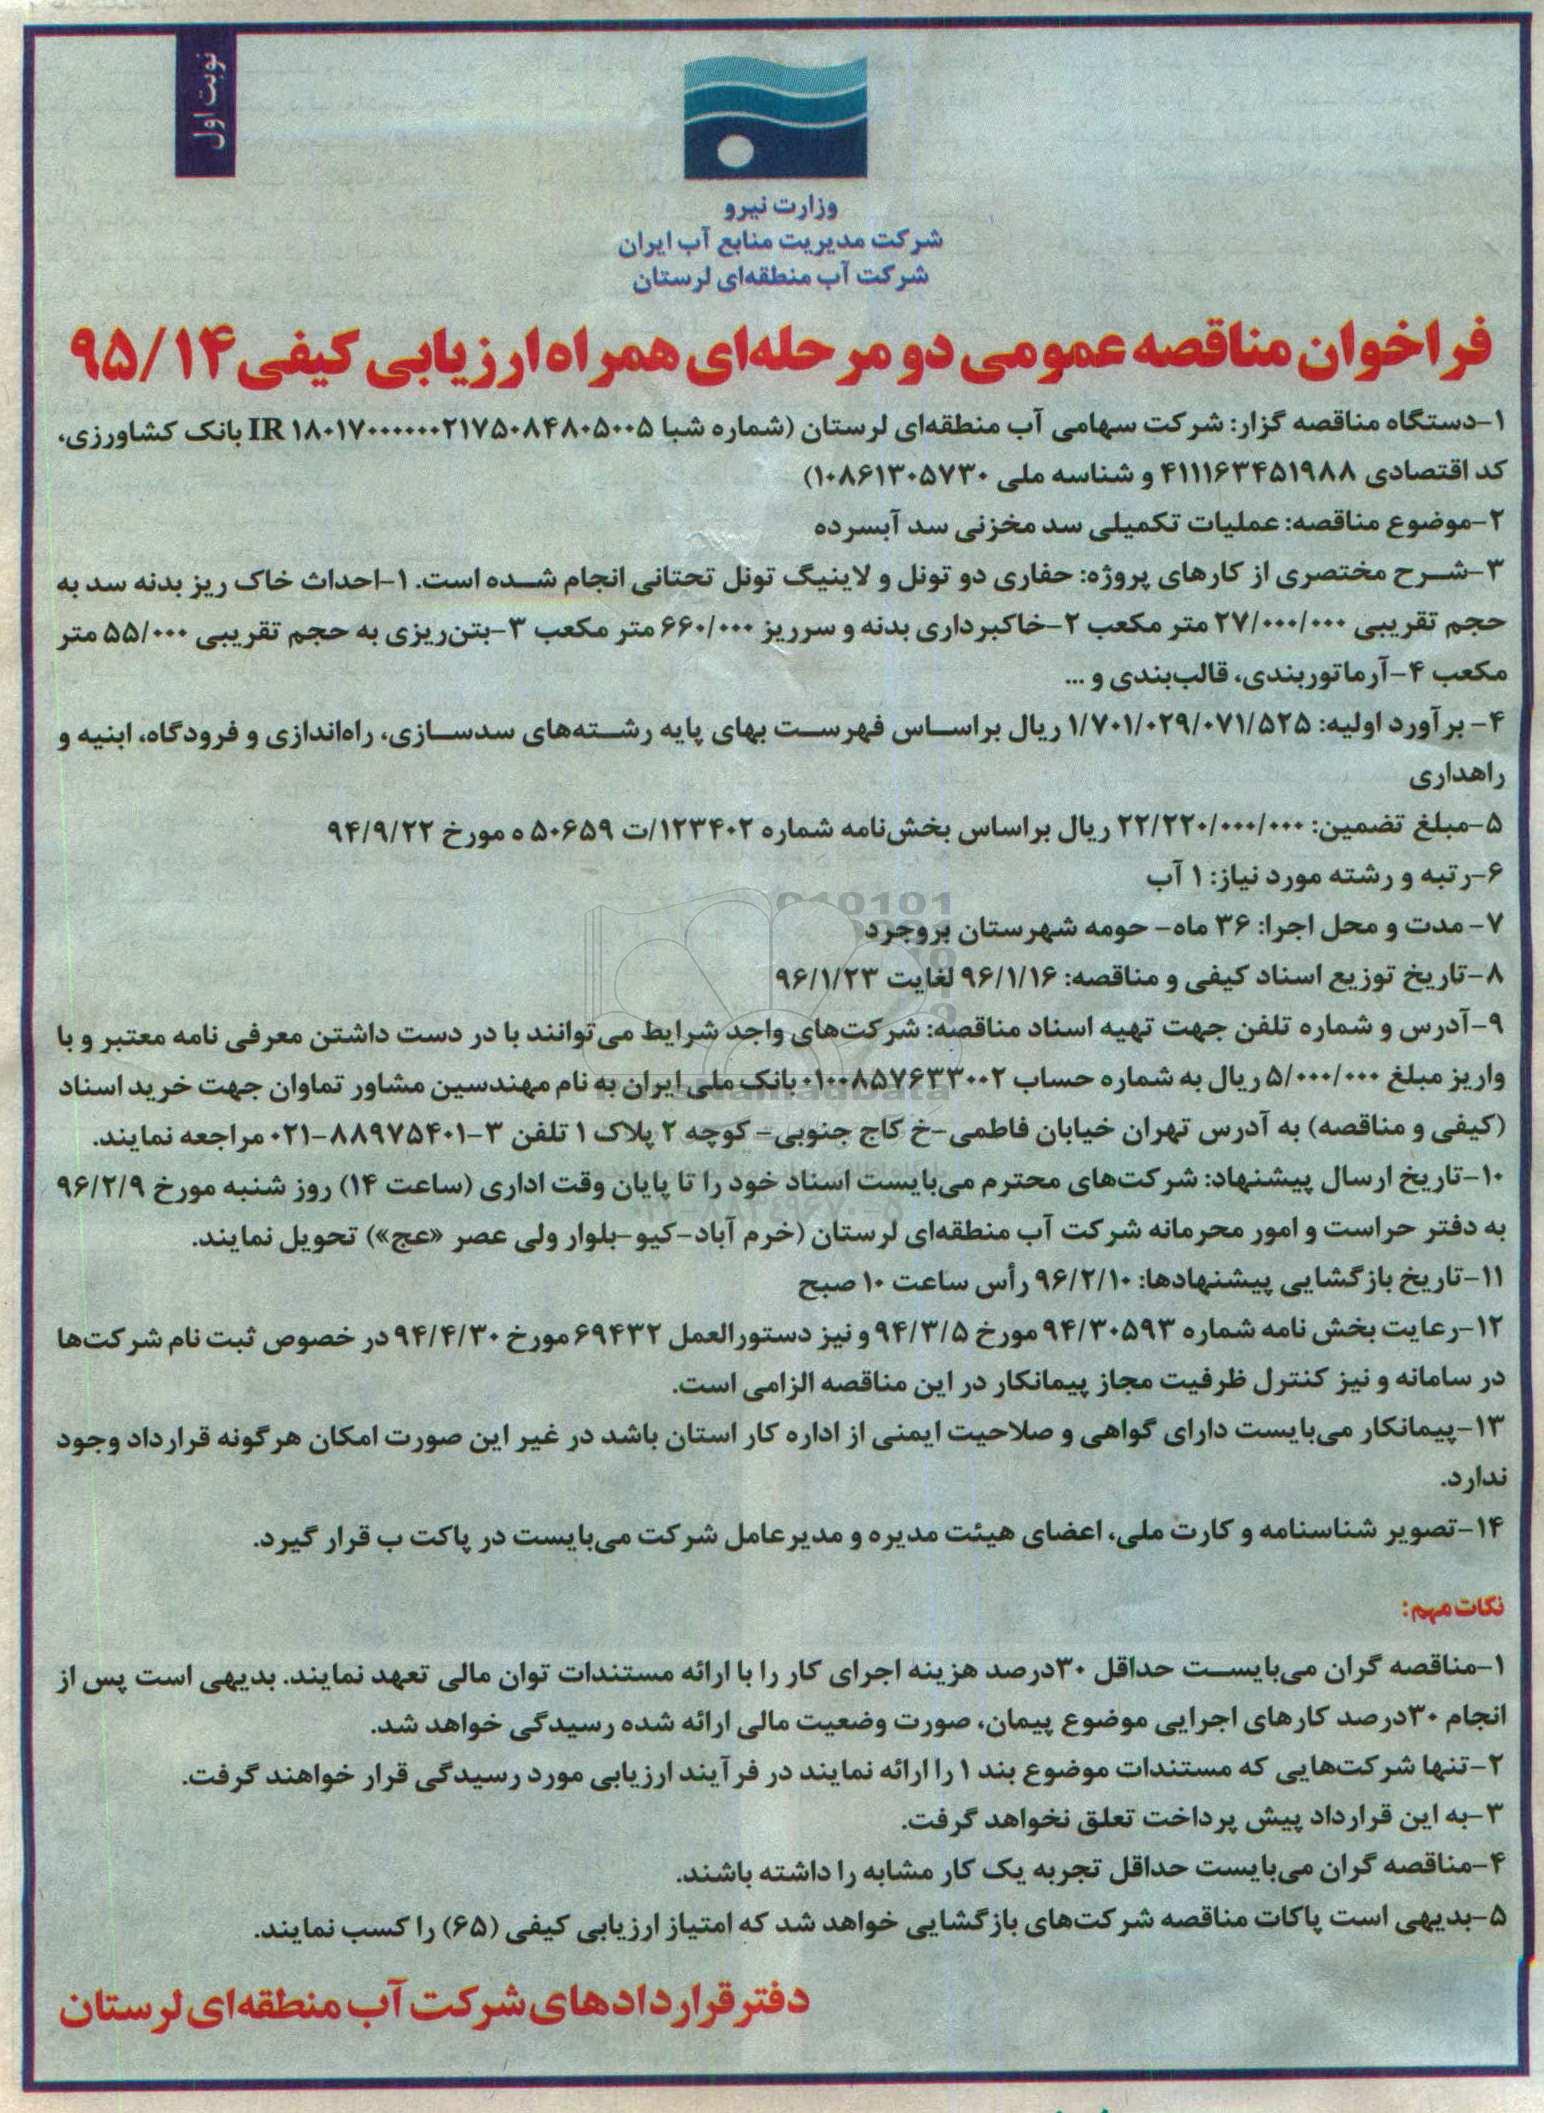 نوبت اول
وزارت نیرو
شرکت مدیریت منابع آب ایران
شرکت آب منطقه‌ای لرستان
فراخوان مناقصه عمومی دو مرحله‌ای همراه ارزیابی کیفی ۹۵/۱۴
۱-دستگاه مناقصه گزار: شرکت سهامی آب منطقه‌ای لرستان (شماره شبا IR ۱۸۰۱۷۰۰۰۰۰۰۰۲۱۷۵۰۸۴۸۰۵۰۰۵ بانک کشاورزی،
کد اقتصادی ۴۱۱۱۶۳۴۵۱۹۸۸ و شناسه ملی ۱۰۸۶۱۳۰۵۷۳۰)
۲-موضوع مناقصه: عملیات تکمیلی سد مخزنی سد آبسرده
۳-شرح مختصری از کارهای پروژه: حفاری دو تونل و لاینیگ تونل تحتانی انجام شده است. ۱-احداث خاک ریز بدنه سد به
حجم تقریبی ۲۷/۰۰۰/۰۰۰ متر مکعب ۲-خاکبرداری بدنه و سرریز ۶۶۰/۰۰۰ متر مکعب ۳-بتن‌ریزی به حجم تقریبی ۵۵/۰۰۰ متر
مکعب ۴-آرماتوربندی، قالب‌بندی و ...
۴- برآورد اولیه: ۱/۷۰۱/۰۲۹/۰۷۱/۵۲۵ ریال براساس فهرست بهای پایه رشته‌های سدسازی، راه‌اندازی و فرودگاه، ابنیه و
راهداری
۵-مبلغ تضمین: ۲۲/۲۲۰/۰۰۰/۰۰۰ ریال براساس بخش‌نامه شماره ۱۲۳۴۰۲/ت ۵۰۶۵۹ ه مورخ ۹۴/۹/۲۲
۶-رتبه و رشته مورد نیاز: ۱ آب
۷- مدت و محل اجرا: ۳۶ ماه- حومه شهرستان بروجرد
۸-تاریخ توزیع اسناد کیفی و مناقصه: ۹۶/۱/۱۶ لغایت ۹۶/۱/۲۳
۹-آدرس و شماره تلفن جهت تهیه اسناد مناقصه: شرکت‌های واجد شرایط می‌توانند با در دست داشتن معرفی نامه معتبر و با
واریز مبلغ ۵/۰۰۰/۰۰۰ ریال به شماره حساب ۰۱۰۰۸۵۷۶۳۳۰۰۲ بانک ملی ایران به نام مهندسین مشاور تماوان جهت خرید اسناد
(کیفی و مناقصه) به آدرس تهران خیابان فاطمی-خ کاج جنوبی- کوچه ۲ پلاک ۱ تلفن ۳-۸۸۹۷۵۴۰۱-۰۲۱ مراجعه نمایند.
۱۰-تاریخ ارسال پیشنهاد: شرکت‌های محترم می‌بایست اسناد خود را تا پایان وقت اداری (ساعت ۱۴) روز شنبه مورخ ۹۶/۲/۹
به دفتر حراست و امور محرمانه شرکت آب منطقه‌ای لرستان (خرم آباد-کیو-بلوار ولی عصر «عج») تحویل نمایند.
۱۱-تاریخ بازگشایی پیشنهادها: ۹۶/۲/۱۰ رأس ساعت ۱۰ صبح
۱۲-رعایت بخش نامه شماره ۹۴/۳۰۵۹۳ مورخ ۹۴/۳/۵ و نیز دستورالعمل ۶۹۴۳۲ مورخ ۹۴/۴/۳۰ در خصوص ثبت نام شرکت‌ها
در سامانه و نیز کنترل ظرفیت مجاز پیمانکار در این مناقصه الزامی است.
۱۳-پیمانکار می‌بایست دارای گواهی و صلاحیت ایمنی از اداره کار استان باشد در غیر این صورت امکان هرگونه قرارداد وجود
ندارد.
۱۴-تصویر شناسنامه و کارت ملی، اعضای هیئت مدیره و مدیرعامل شرکت می‌بایست در پاکت ب قرار گیرد.
نکات مهم:
۱-مناقصه گران می‌بایست حداقل ۳۰درصد هزینه اجرای کار را با ارائه مستندات توان مالی تعهد نمایند. بدیهی است پس از
انجام ۳۰درصد کارهای اجرایی موضوع پیمان، صورت وضعیت مالی ارائه شده رسیدگی خواهد شد.
۲-تنها شرکت‌هایی که مستندات موضوع بند ۱ را ارائه نمایند در فرآیند ارزیابی مورد رسیدگی قرار خواهند گرفت.
۳-به این قرارداد پیش پرداخت تعلق نخواهد گرفت.
۴-مناقصه گران می‌بایست حداقل تجربه یک کار مشابه را داشته باشند.
۵-بدیهی است پاکات مناقصه شرکت‌های بازگشایی خواهد شد که امتیاز ارزیابی کیفی (۶۵) را کسب نمایند.
دفتر قراردادهای شرکت آب منطقه‌ای لرستان